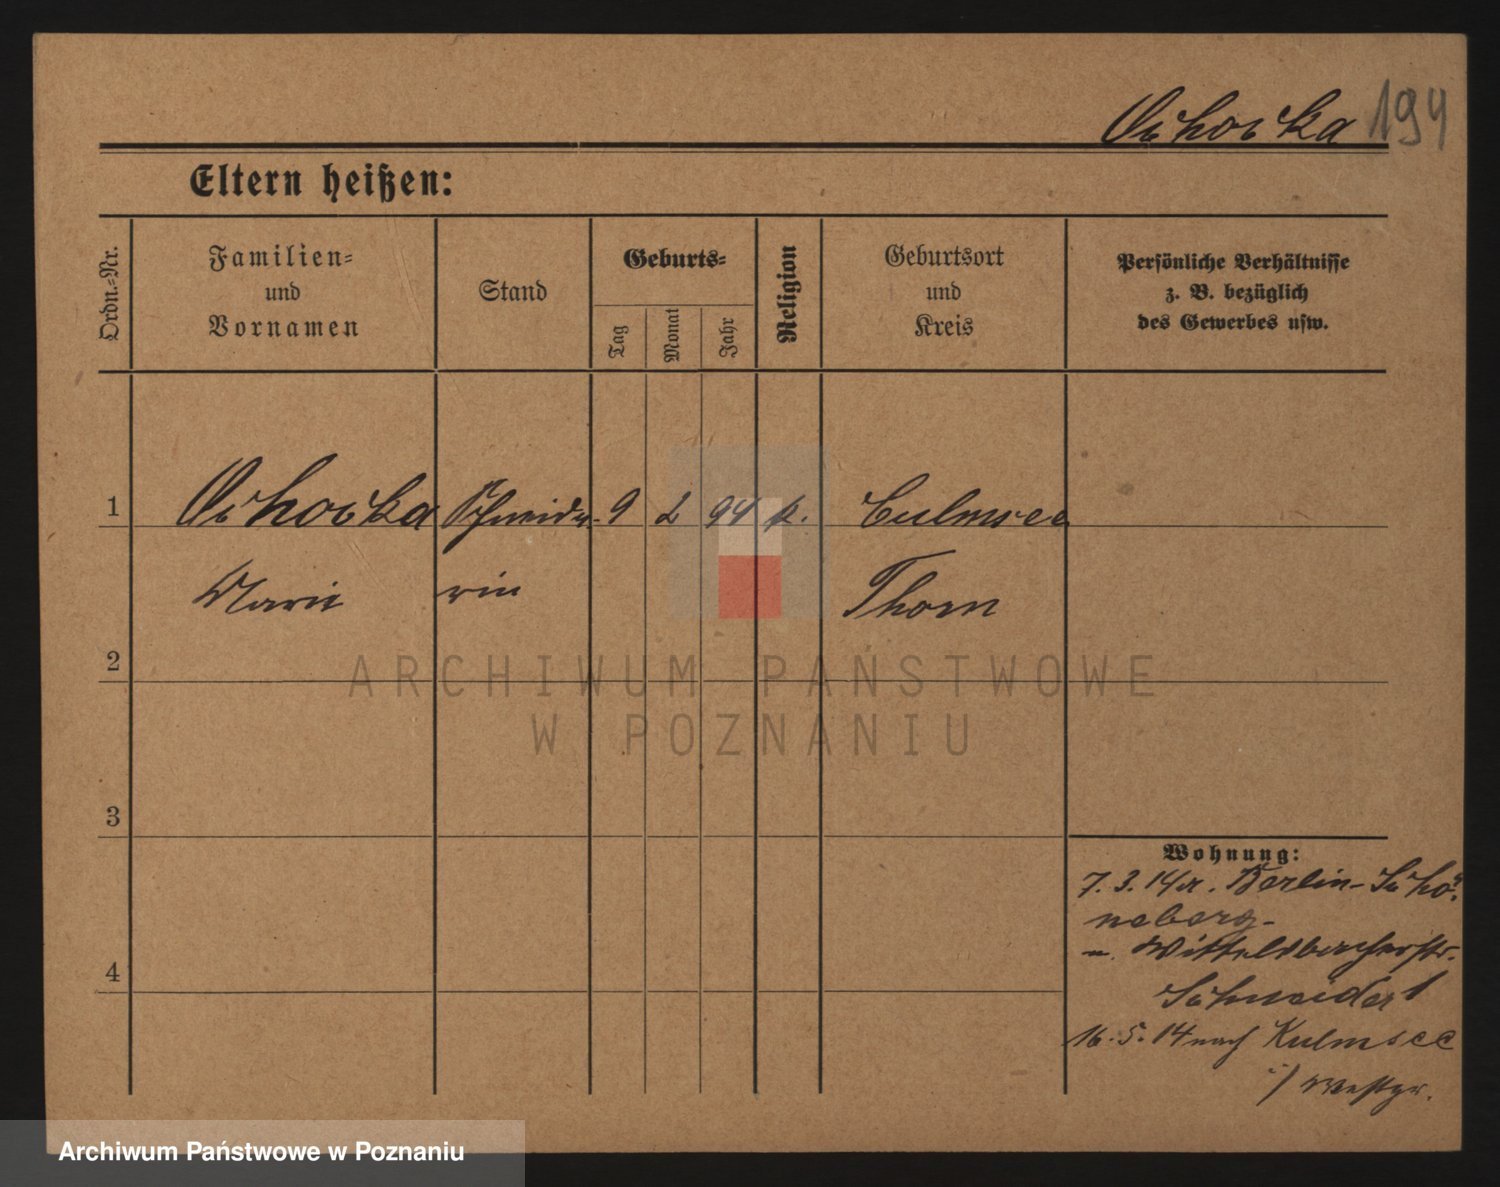 Ochocka 194
Eltern heißen:
Ordn.-Nr.
Familien-
und
Vornamen
Stand
Geburts-
Tag
Monat
Jahr
Religion
Geburtsort
und
Kreis
Persönliche Verhältnisse
z. B. bezüglich
des Gewerbes usw.
1 Ochocka Schneide- 9 2 94 k. Culmsee
Marie rin Thorn
2
ARCHIWUM PAŃSTWOWE
W POZNANIU
3
Wohnung:
7. 3. 14 Berlin-Schö-
neberg-
Wittelsbacherstr.
Schneider 1
4
16. 5. 14 nach Kulmsee
i/ Westpr.
Archiwum Państwowe w Poznaniu